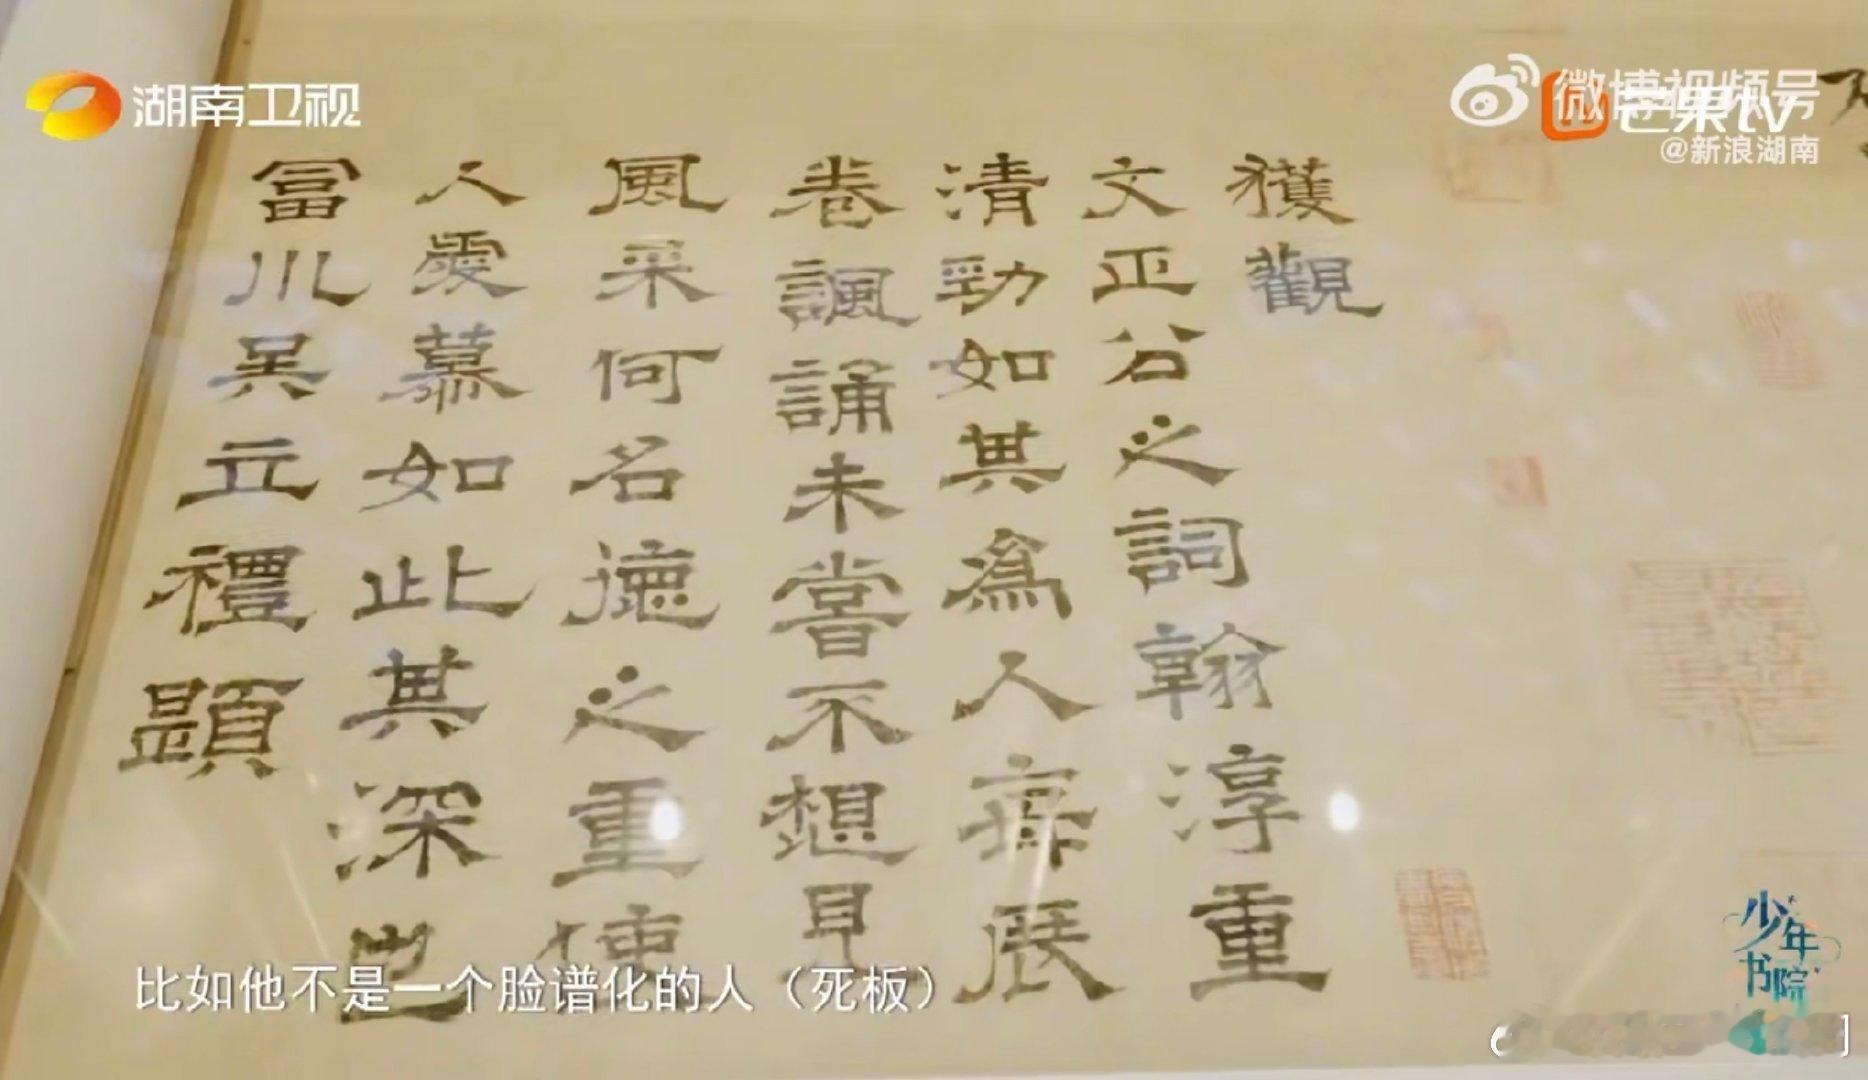 湖南卫视
微博视频号
芒果tv
@新浪湖南
獲觀
文正公之詞翰淳重
清勁如其為人每展
卷諷誦未嘗不想見
風采何名德之重使
人愛慕如此其深也
冨川吴立禮題
比如他不是一个脸谱化的人（死板）
少年
书院